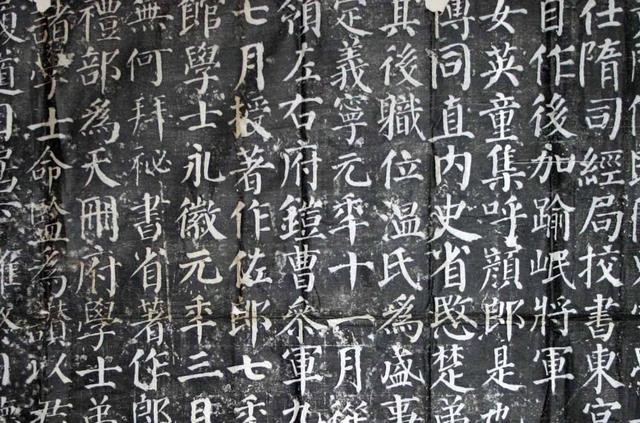 仕隋司經局挍書東宮
自作後加踰岷將軍
女英童集呼顏郎是也
博同直內史省愍楚弟
其後職位溫氏為盛事
定義寧元年十一月從
領左右府鎧曹參軍九
七月授著作佐郎七年
館學士永徽元年三月
無何拜祕書省著作郎
禮部為天冊府學士弟
諸學士命監為讚以君